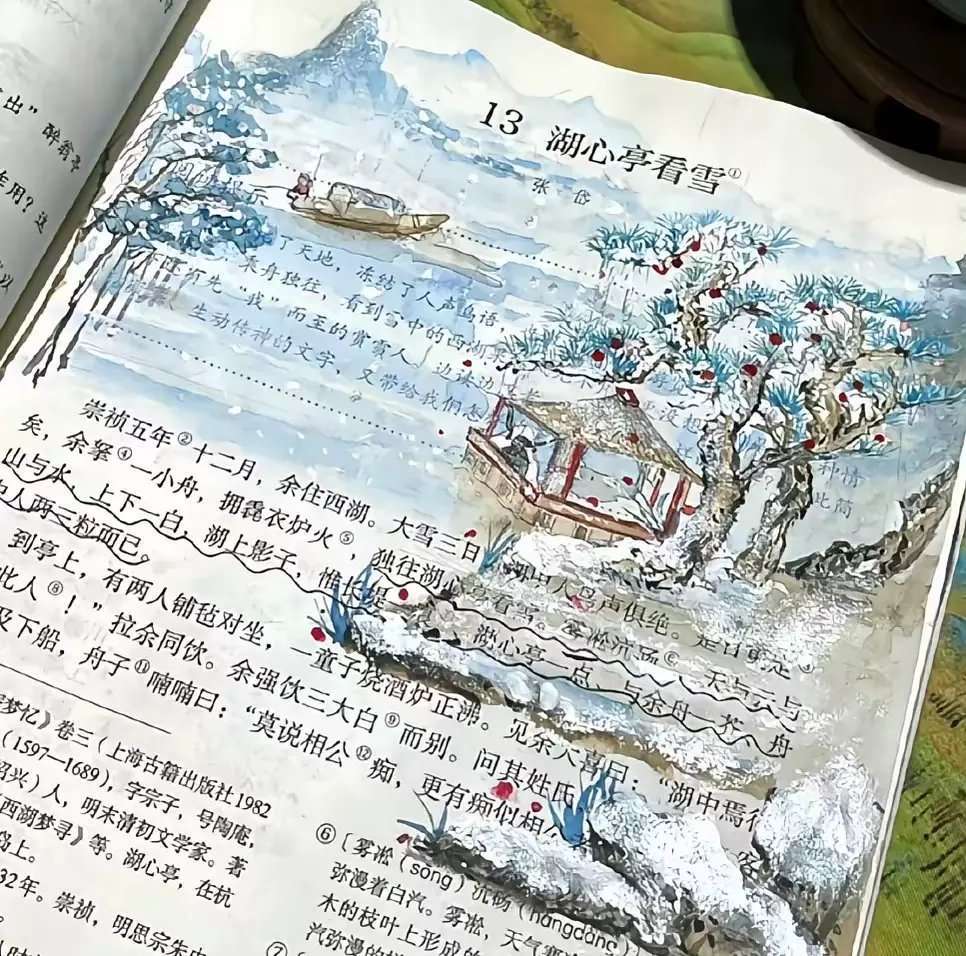 出”
醉翁亭
作用？这
以
13 湖心亭看雪①
张 岱
示
了天地，冻结了人声鸟语，
舟独往，看到雪中的西湖
先“我”而至的赏雪人
生动传神的文字，又带给我们怎
种情
此简
崇祯五年②十二月，余住西湖。大雪三日，湖中人鸟声俱绝。是日更定
矣，余拏④一小舟，拥毳衣炉火⑤，独往湖心亭看雪。雾凇沆砀⑥，天与云与
山与水，上下一白，湖上影子，惟长堤 湖心亭一点、与余舟一芥、舟
中人两三粒而已。
到亭上，有两人铺毡对坐，一童子烧酒炉正沸。见余大喜曰：“湖中焉得
此人⑧！”拉余同饮。余强饮三大白⑨而别。问其姓氏 客
及下船，舟子⑪喃喃曰：“莫说相公⑫痴，更有痴似相公
梦忆》卷三（上海古籍出版社1982
（1597—1689），字宗子，号陶庵，
绍兴）人，明末清初文学家。著
西湖梦寻》等。湖心亭，在杭
岛上。
32年。崇祯，明思宗朱由
⑥〔雾凇（sōng）沆砀（hàngdàng）
弥漫着白汽。雾凇，天气寒
木的枝叶上形成的
汽弥漫的样
⑦